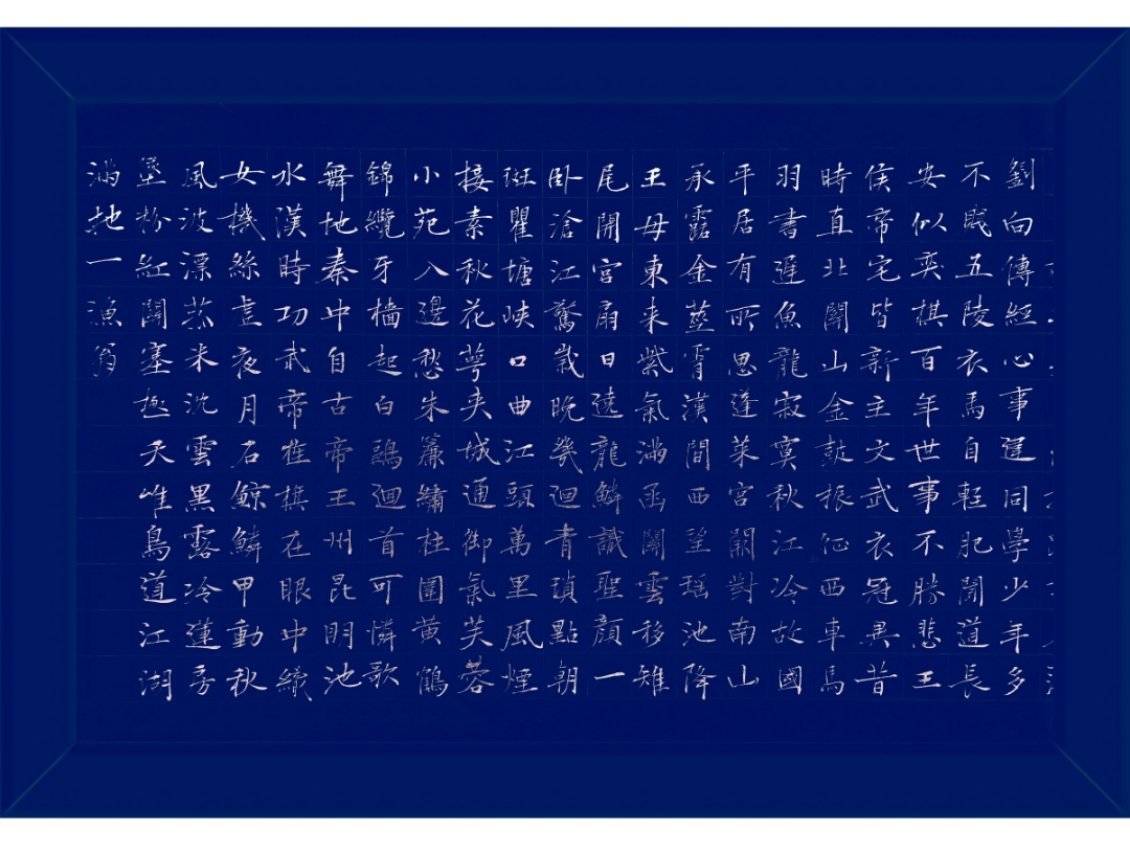 劉向傳經心事違同學少年多
不賤五陵衣馬自輕肥聞道長
安似奕棋百年世事不勝悲王
侯帝宅皆新主文武衣冠異昔
時直北關山金鼓振征西車馬
羽書遲魚龍寂寞秋江冷故國
平居有所思蓬萊宮闕對南山
承露金莖霄漢間西望瑶池降
王母東来紫氣滿函關雲移雉
尾開宮扇日遶龍鱗識聖顔一
卧滄江驚歲晚幾迴青瑣點朝
班瞿塘峽口曲江頭萬里風煙
接素秋花萼夹城通御氣芙蓉
小苑入邊愁朱簾繡柱圍黄鶴
錦纜牙檣起白鷗迴首可憐歌
舞地秦中自古帝王州昆明池
水漢時功武帝旌旗在眼中織
女機絲虚夜月石鯨鱗甲動秋
風波漂菰米沈雲黑露冷蓮房
墜粉紅關塞極天唯鳥道江湖
滿地一漁翁